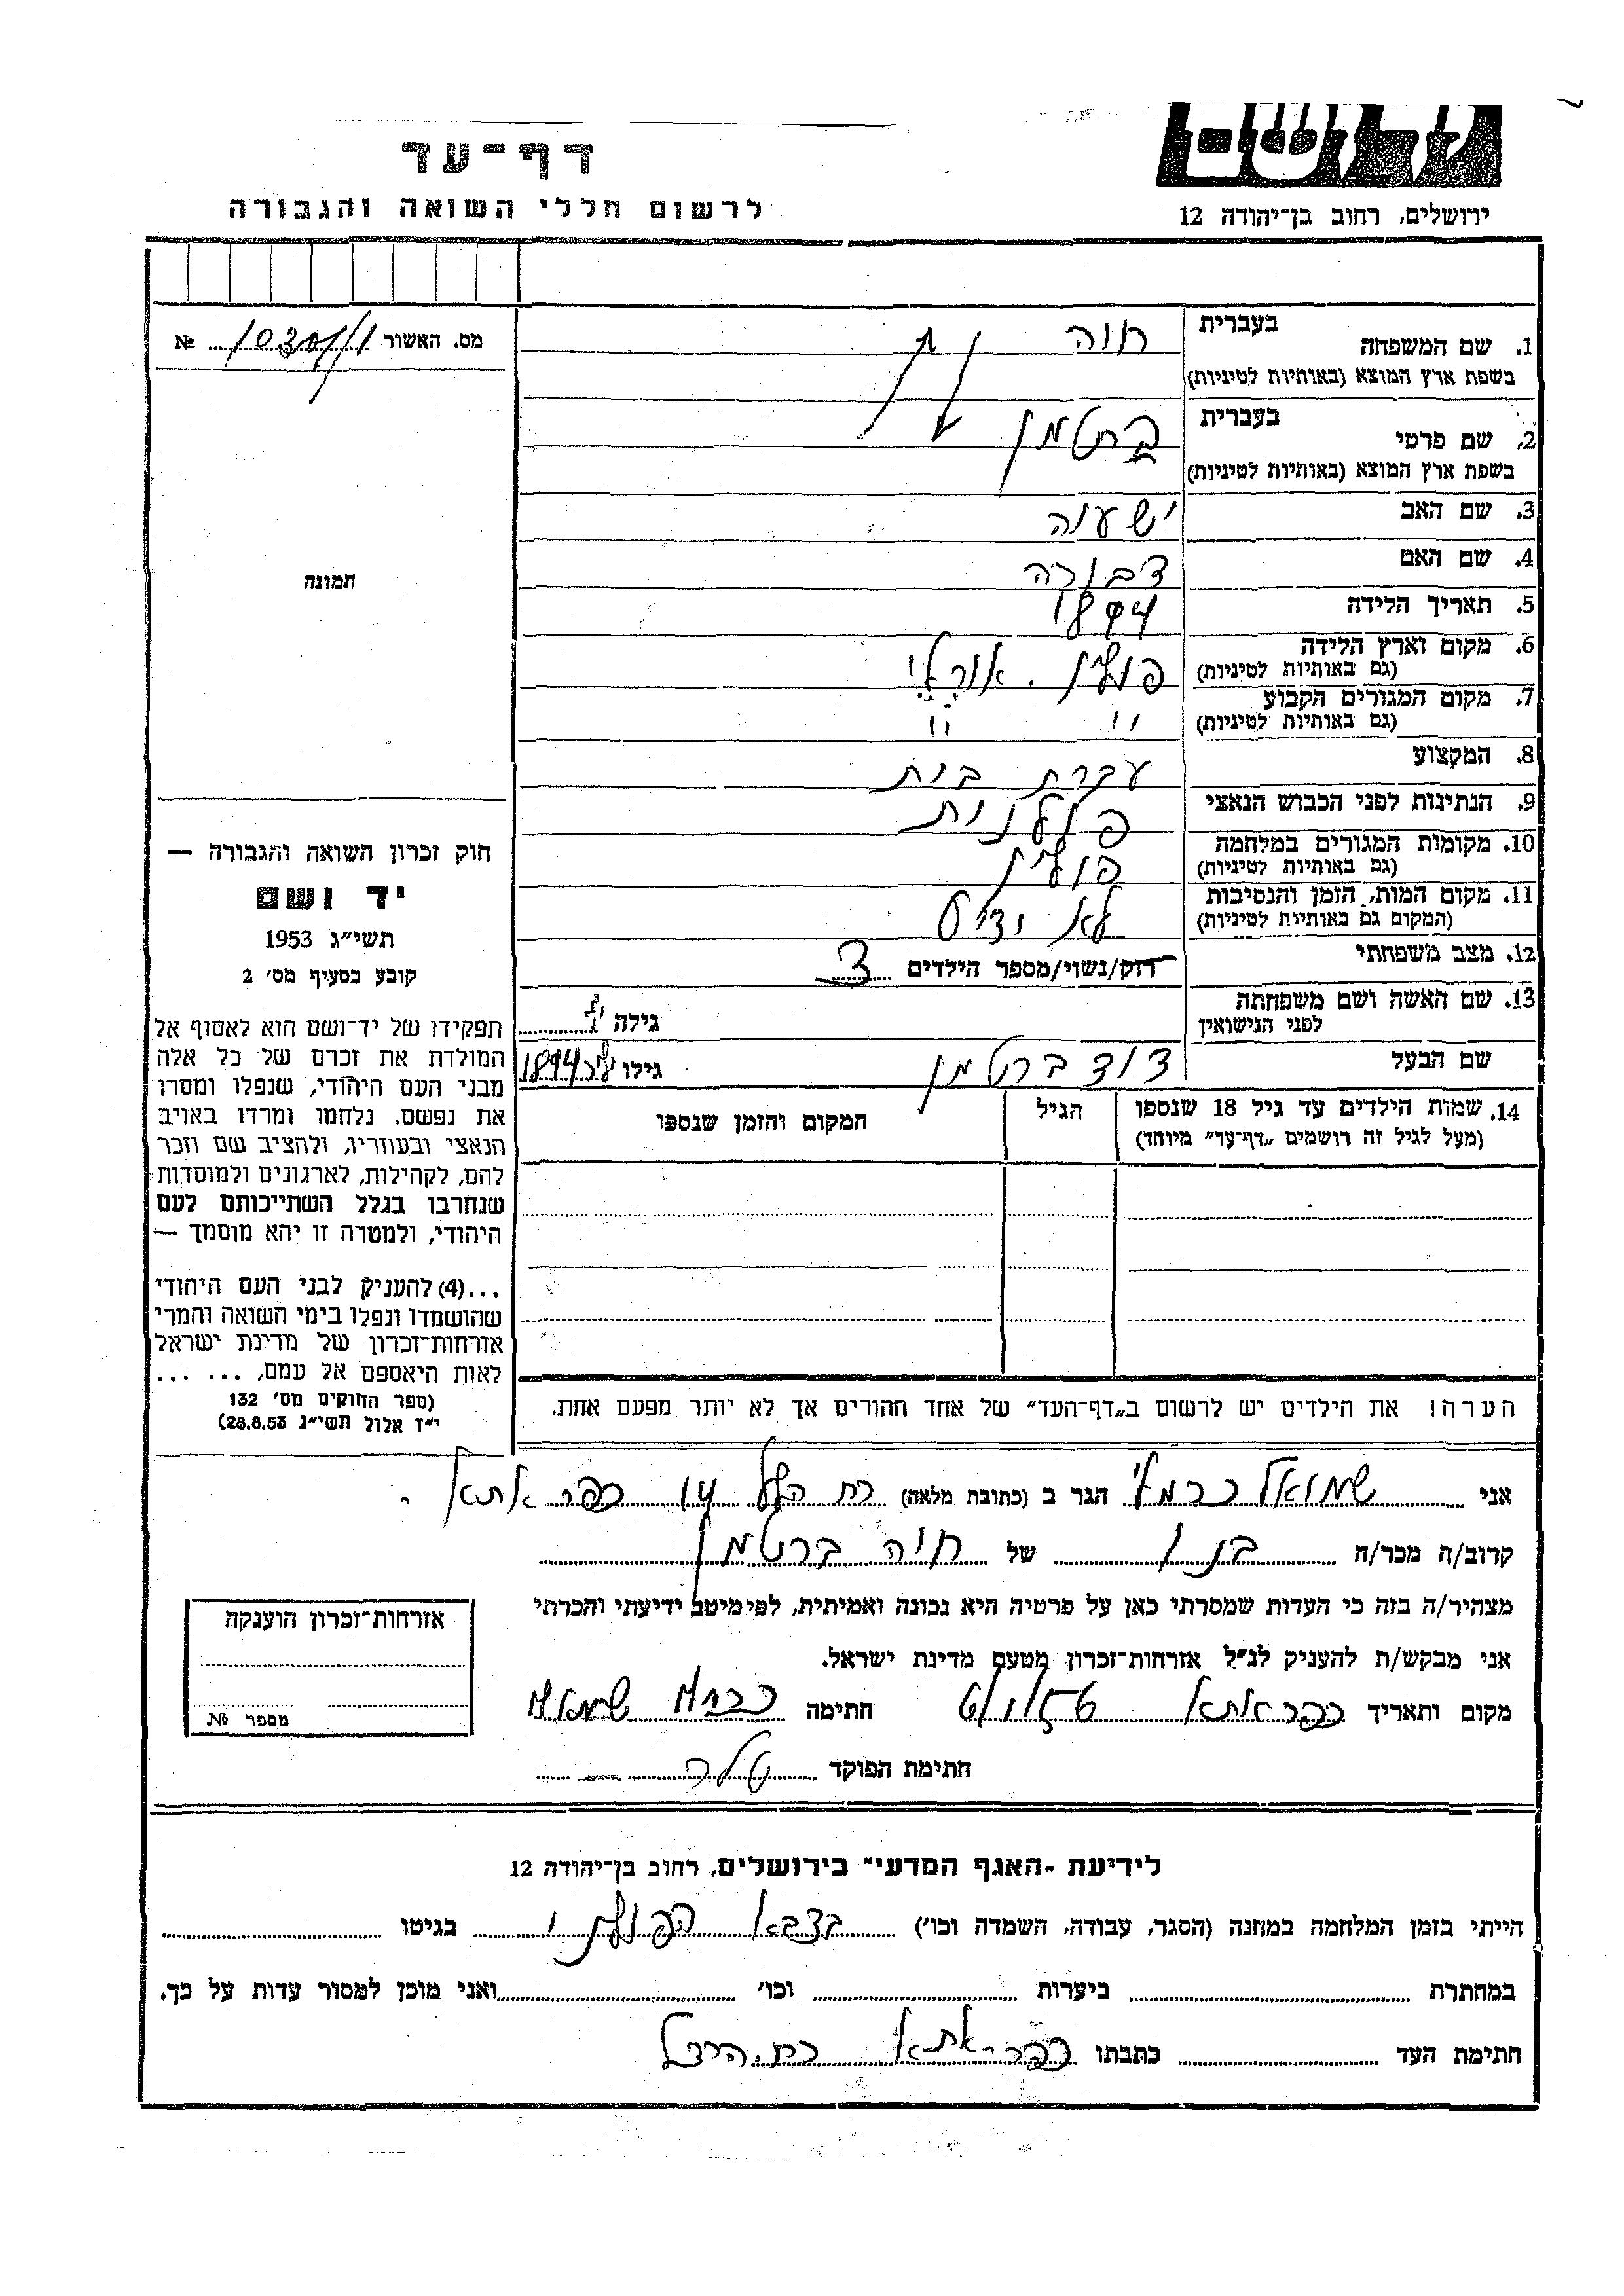 ירושלים, רחוב בן־יהודה 12
דף־עד
לרשום חללי השואה והגבורה
מס. האשור №
1. שם המשפחה בעברית חוה
בשפת ארץ המוצא (באותיות לטיניות)
2. שם פרטי בעברית ברטמן
בשפת ארץ המוצא (באותיות לטיניות)
3. שם האב ישעיה
4. שם האם דבורה
5. תאריך הלידה
6. מקום וארץ הלידה
(גם באותיות לטיניות)
7. מקום המגורים הקבוע " "
(גם באותיות לטיניות)
8. המקצוע עקרת בית
9. הנתינות לפני הכבוש הנאצי פולנית
10. מקומות המגורים במלחמה פולין
(גם באותיות לטיניות)
11. מקום המות, הזמן והנסיבות לא ידוע
(המקום גם באותיות לטיניות)
12. מצב משפחתי רוק/נשוי/מספר הילדים 3
13. שם האשה ושם משפחתה
לפני הנישואין גילה
שם הבעל דוד ברטמן גילו 1894
14. שמות הילדים עד גיל 18 שנספו הגיל המקום והזמן שנספו
(מעל לגיל זה רושמים „דף־עד" מיוחד)
הערה! את הילדים יש לרשום ב„דף־העד" של אחד ההורים אך לא יותר מפעם אחת.
תמונה
חוק זכרון השואה והגבורה —
יד ושם
תשי"ג 1953
קובע בסעיף מס' 2
תפקידו של יד־ושם הוא לאסוף אל
המולדת את זכרם של כל אלה
מבני העם היהודי, שנפלו ומסרו
את נפשם, נלחמו ומרדו באויב
הנאצי ובעוזריו, ולהציב שם וזכר
להם, לקהילות, לארגונים ולמוסדות
שנחרבו בגלל השתייכותם לעם
היהודי, ולמטרה זו יהא מוסמך —
...(4) להעניק לבני העם היהודי
שהושמדו ונפלו בימי השואה והמרי
אזרחות־זכרון של מדינת ישראל
לאות היאספם אל עמם, ... ...
(ספר החוקים מס' 132
י"ז אלול תשי"ג 28.8.53)
אני שמואל כרמלי הגר ב (כתובת מלאה) רח כפר אתא.
קרוב/ה מכר/ה בנו של חוה ברטמן
מצהיר/ה בזה כי העדות שמסרתי כאן על פרטיה היא נכונה ואמיתית, לפי מיטב ידיעתי והכרתי
אני מבקש/ת להעניק לנ"ל אזרחות־זכרון מטעם מדינת ישראל.
מקום ותאריך כפר אתא חתימה כרמלי שמואל
חתימת הפוקד
אזרחות־זכרון הוענקה
מספר №
לידיעת „האגף המדעי" בירושלים, רחוב בן־יהודה 12
הייתי בזמן המלחמה במחנה (הסגר, עבודה, השמדה וכו') בצבא הפולני בגיטו
במחתרת ביערות וכו' ואני מוכן למסור עדות על כך.
חתימת העד כתבתו כפר־אתא רח. הרצל